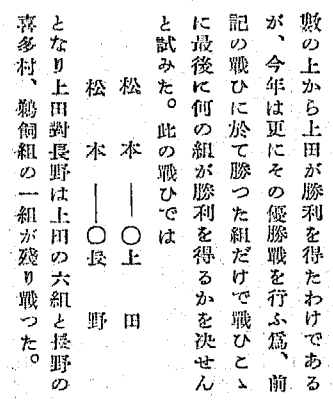 數の上から上田が勝利を得たわけである
が、今年は更にその優勝戰を行ふ爲、前
記の戰ひに於て勝つた組だけで戰ひこゝ
に最後に何の組が勝利を得るかを決せん
と試みた。此の戰ひでは
松本―○上田
松本―○長野
となり上田對長野は上田の六組と長野の
喜多村、鵜飼組の一組が殘り戰つた。